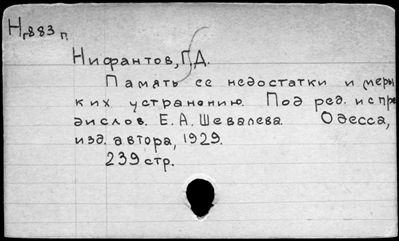 Нг883 п
Нифантов, Г.Д.
Память ее недостатки и меры
ких устранению. Под ред. и с пре
дислов. Е.А. Шевалева. Одесса,
изд. автора, 1929.
239 стр.